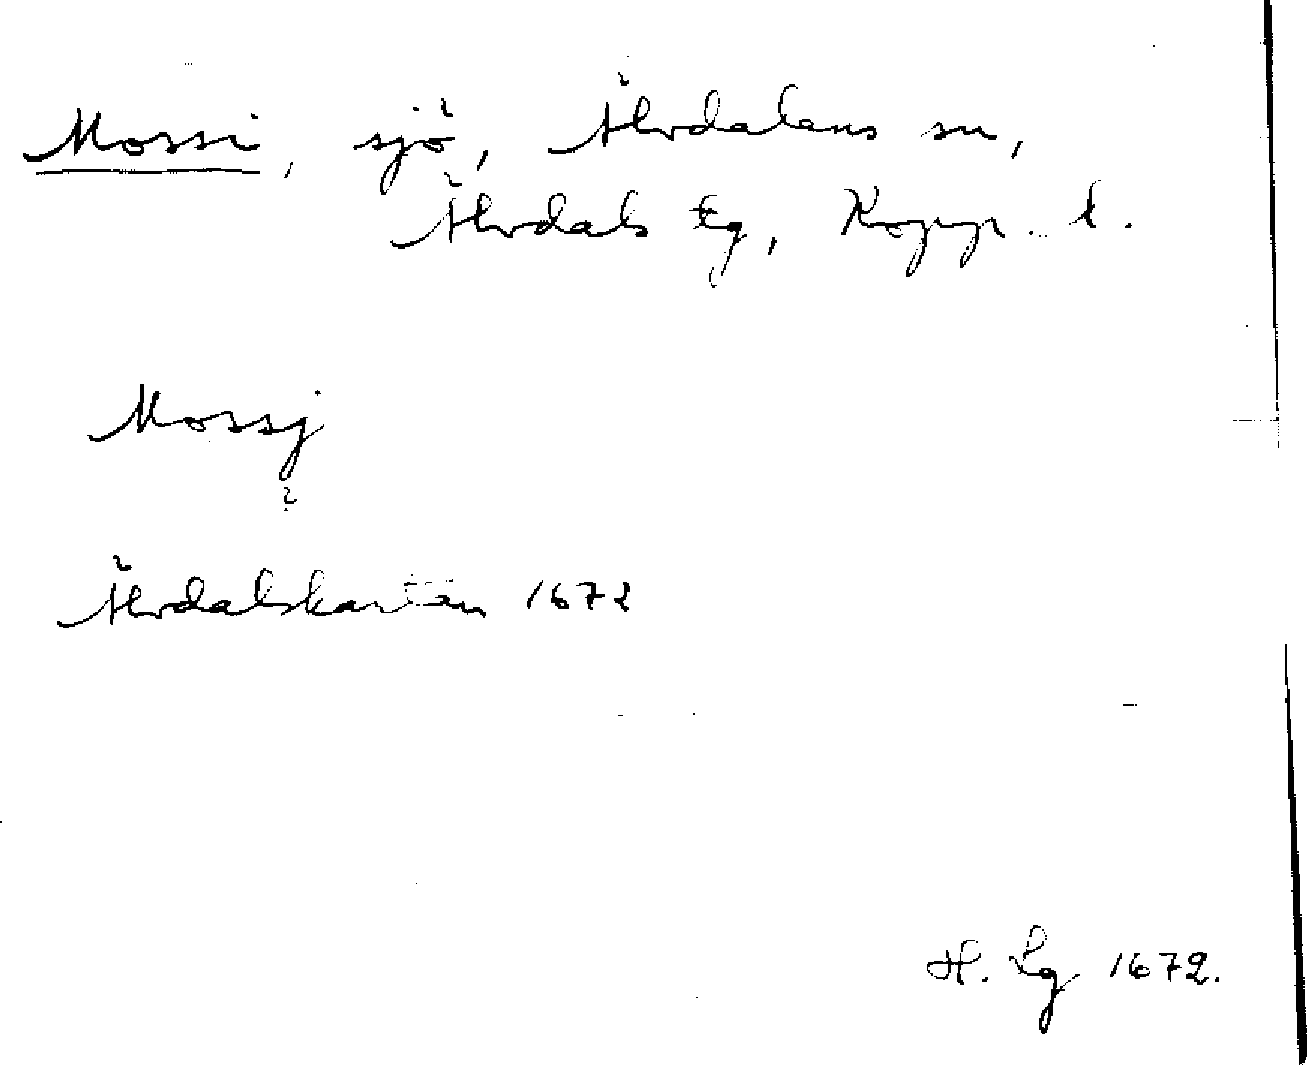 Mossi, sjö, Älvdalens sn,
Älvdals tg, Kopp. l.
Mossj
Älvdalskartan 1672
H. Lg 1672.